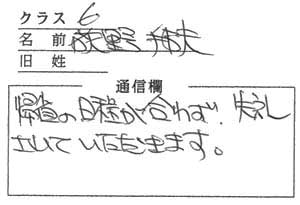 クラス 6
名前
旧姓
通信欄
帰省の日程が合わず、失礼
させていただきます。